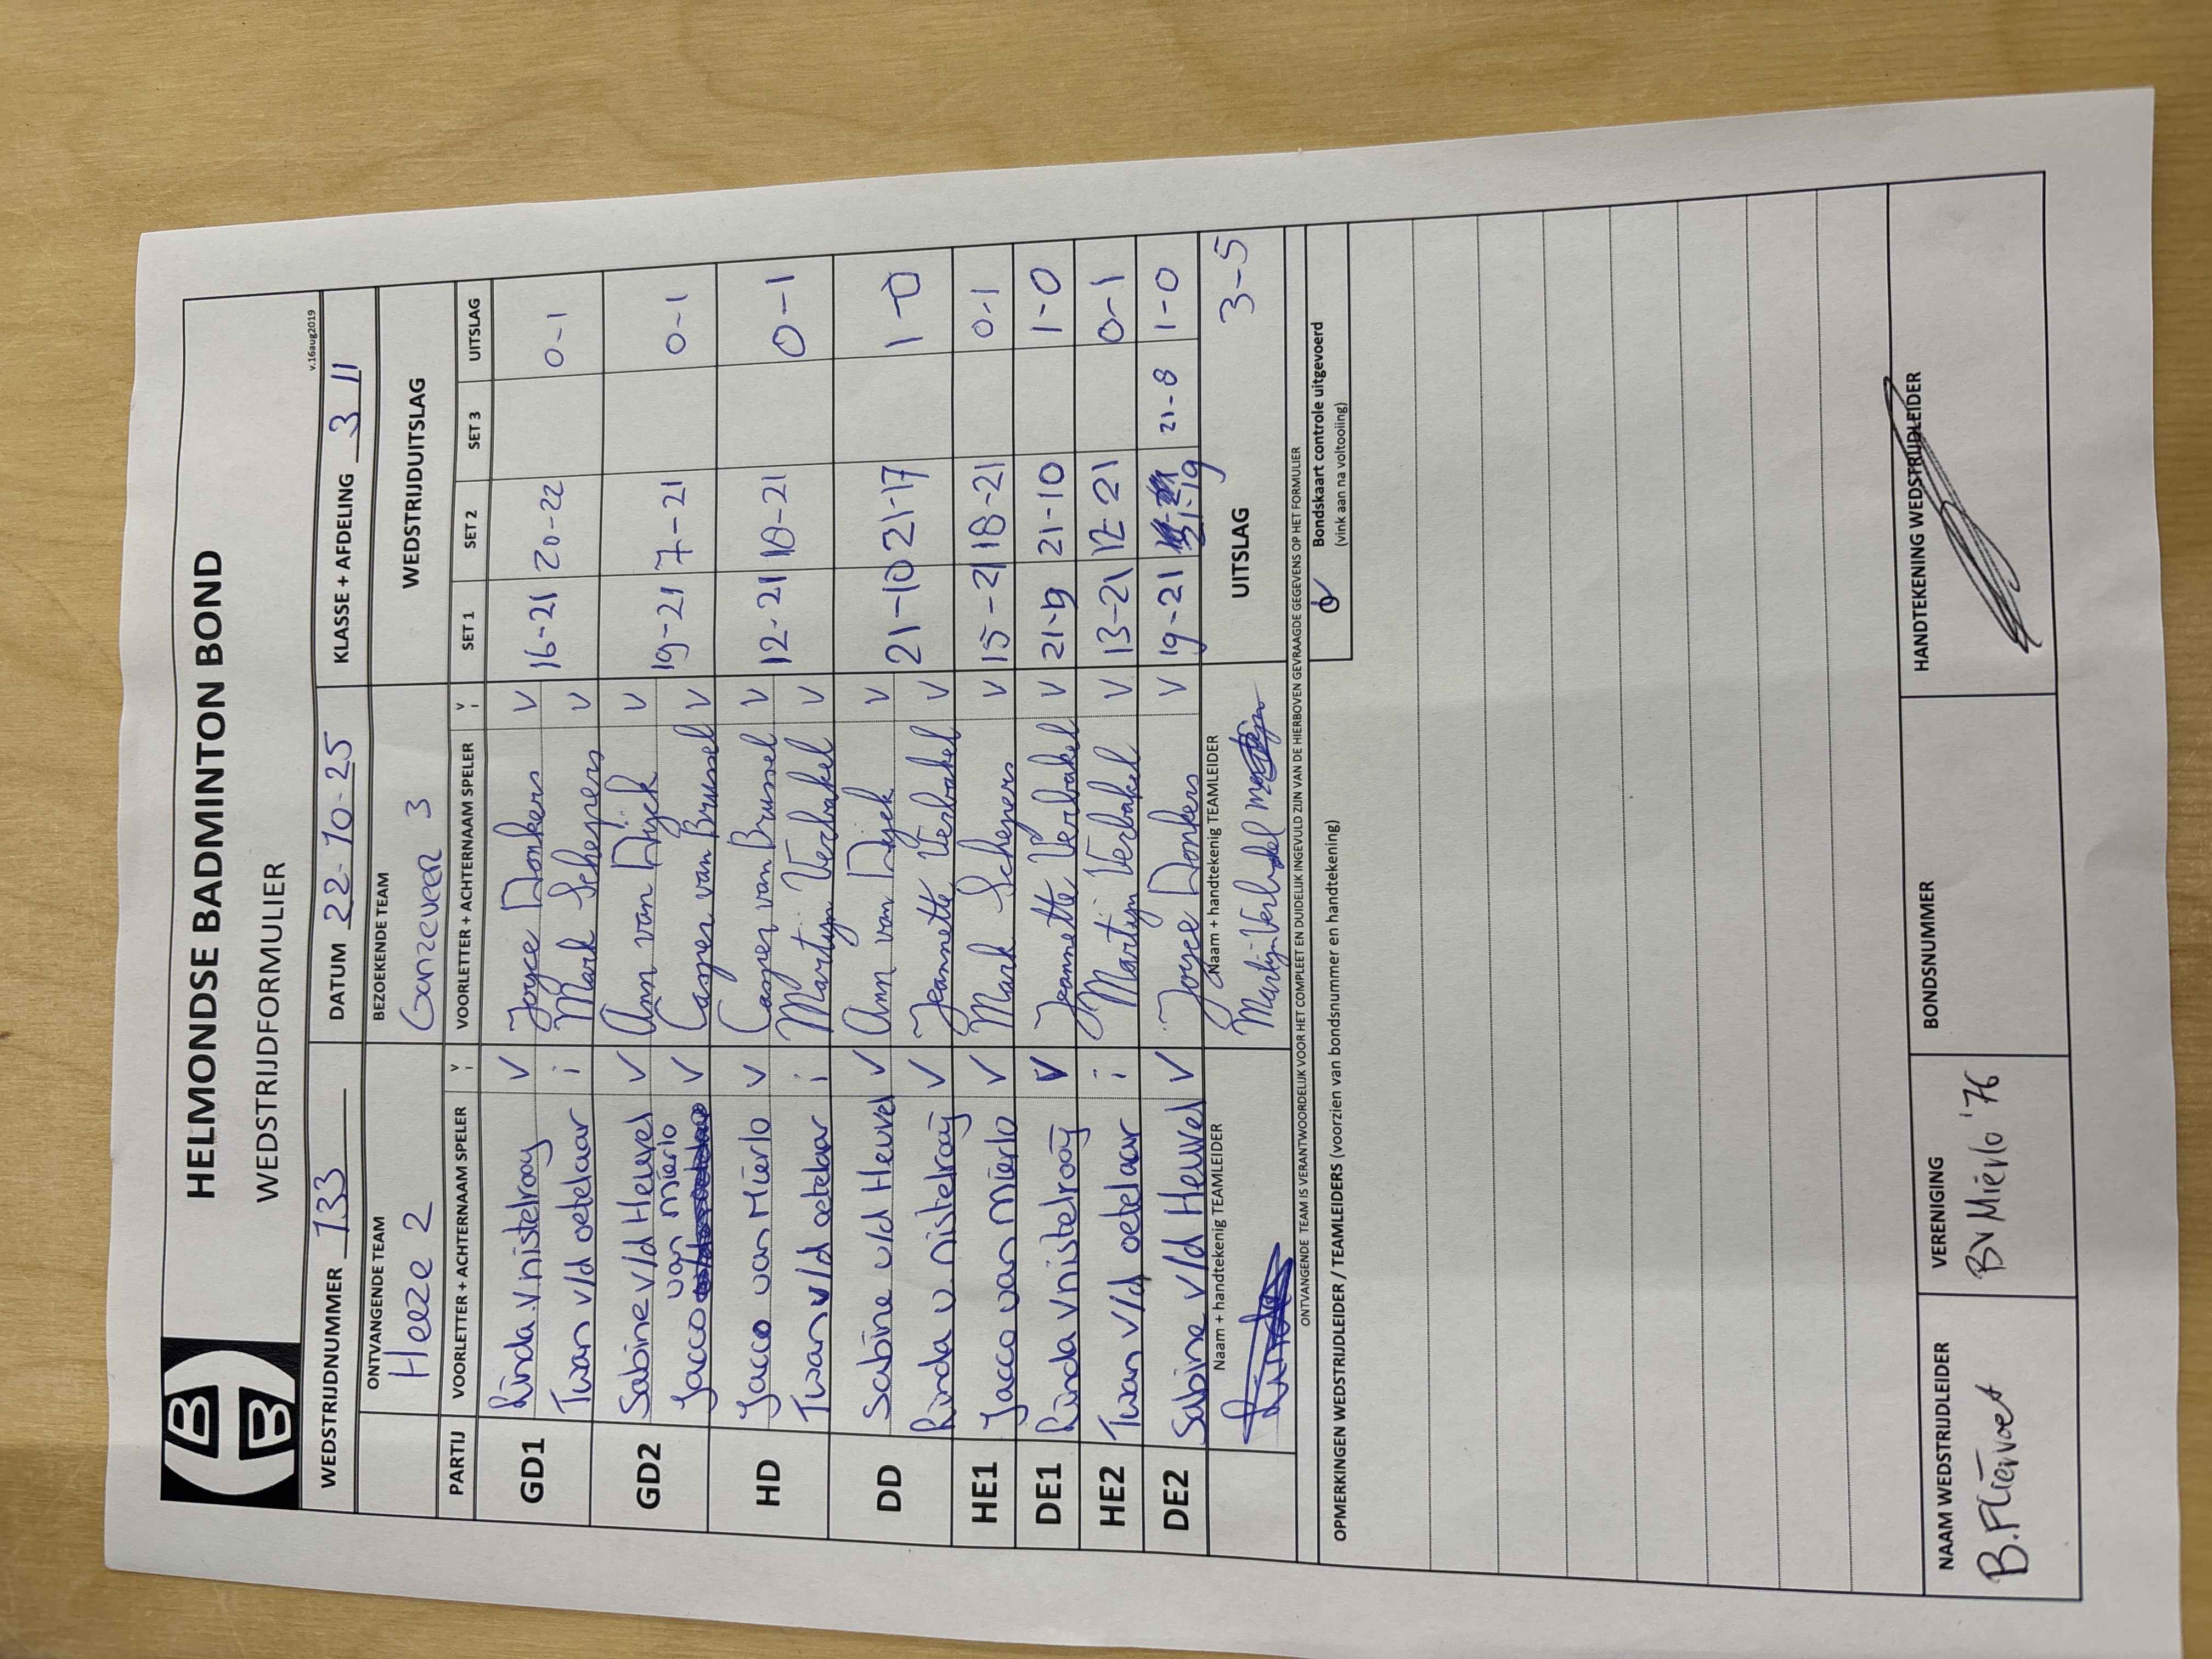 HELMONDSE BADMINTON BOND
WEDSTRIJDFORMULIER
v.16aug2019
WEDSTRIJDNUMMER 133 DATUM 22-10-25 KLASSE + AFDELING 3 11
ONTVANGENDE TEAM BEZOEKENDE TEAM WEDSTRIJDUITSLAG
Heeze 2 Ganzeveer 3
PARTIJ VOORLETTER + ACHTERNAAM SPELER V i VOORLETTER + ACHTERNAAM SPELER V i SET 1 SET 2 SET 3 UITSLAG
GD1 Linda v nistelrooy V Joyce Donkers V 16-21 20-22 0-1
Twan v/d oetelaar i Mark Schepers V
GD2 Sabine v/d Heuvel V Ann van Dijck V 19-21 7-21 0-1
Jacco van mierlo V Casper van Brussel V
HD Jacco van Mierlo V Casper van Brussel V 12-21 18-21 0-1
Twan v/d oetelaar i Martijn Verbakel V
DD Sabine v/d Heuvel V Ann van Dijck V 21-10 21-17 1-0
Linda v. nistelrooij V Jeannette Verbakel V
HE1 Jacco van mierlo V Mark Schepers V 15-21 18-21 0-1
DE1 Linda v nistelrooij V Jeannette Verbakel V 21-9 21-10 1-0
HE2 Twan v/d oetelaar i Martijn Verbakel V 13-21 12-21 0-1
DE2 Sabine v/d Heuvel V Joyce Donkers V 19-21 21-19 21-8 1-0
Naam + handtekenig TEAMLEIDER Naam + handtekenig TEAMLEIDER UITSLAG 3-5
Martijn Verbakel
ONTVANGENDE TEAM IS VERANTWOORDELIJK VOOR HET COMPLEET EN DUIDELIJK INGEVULD ZIJN VAN DE HIERBOVEN GEVRAAGDE GEGEVENS OP HET FORMULIER
OPMERKINGEN WEDSTRIJDLEIDER / TEAMLEIDERS (voorzien van bondsnummer en handtekening)
Bondskaart controle uitgevoerd
(vink aan na voltooiing)
NAAM WEDSTRIJDLEIDER VERENIGING BONDSNUMMER HANDTEKENING WEDSTRIJDLEIDER
B. Flievoet BV Mierlo '76